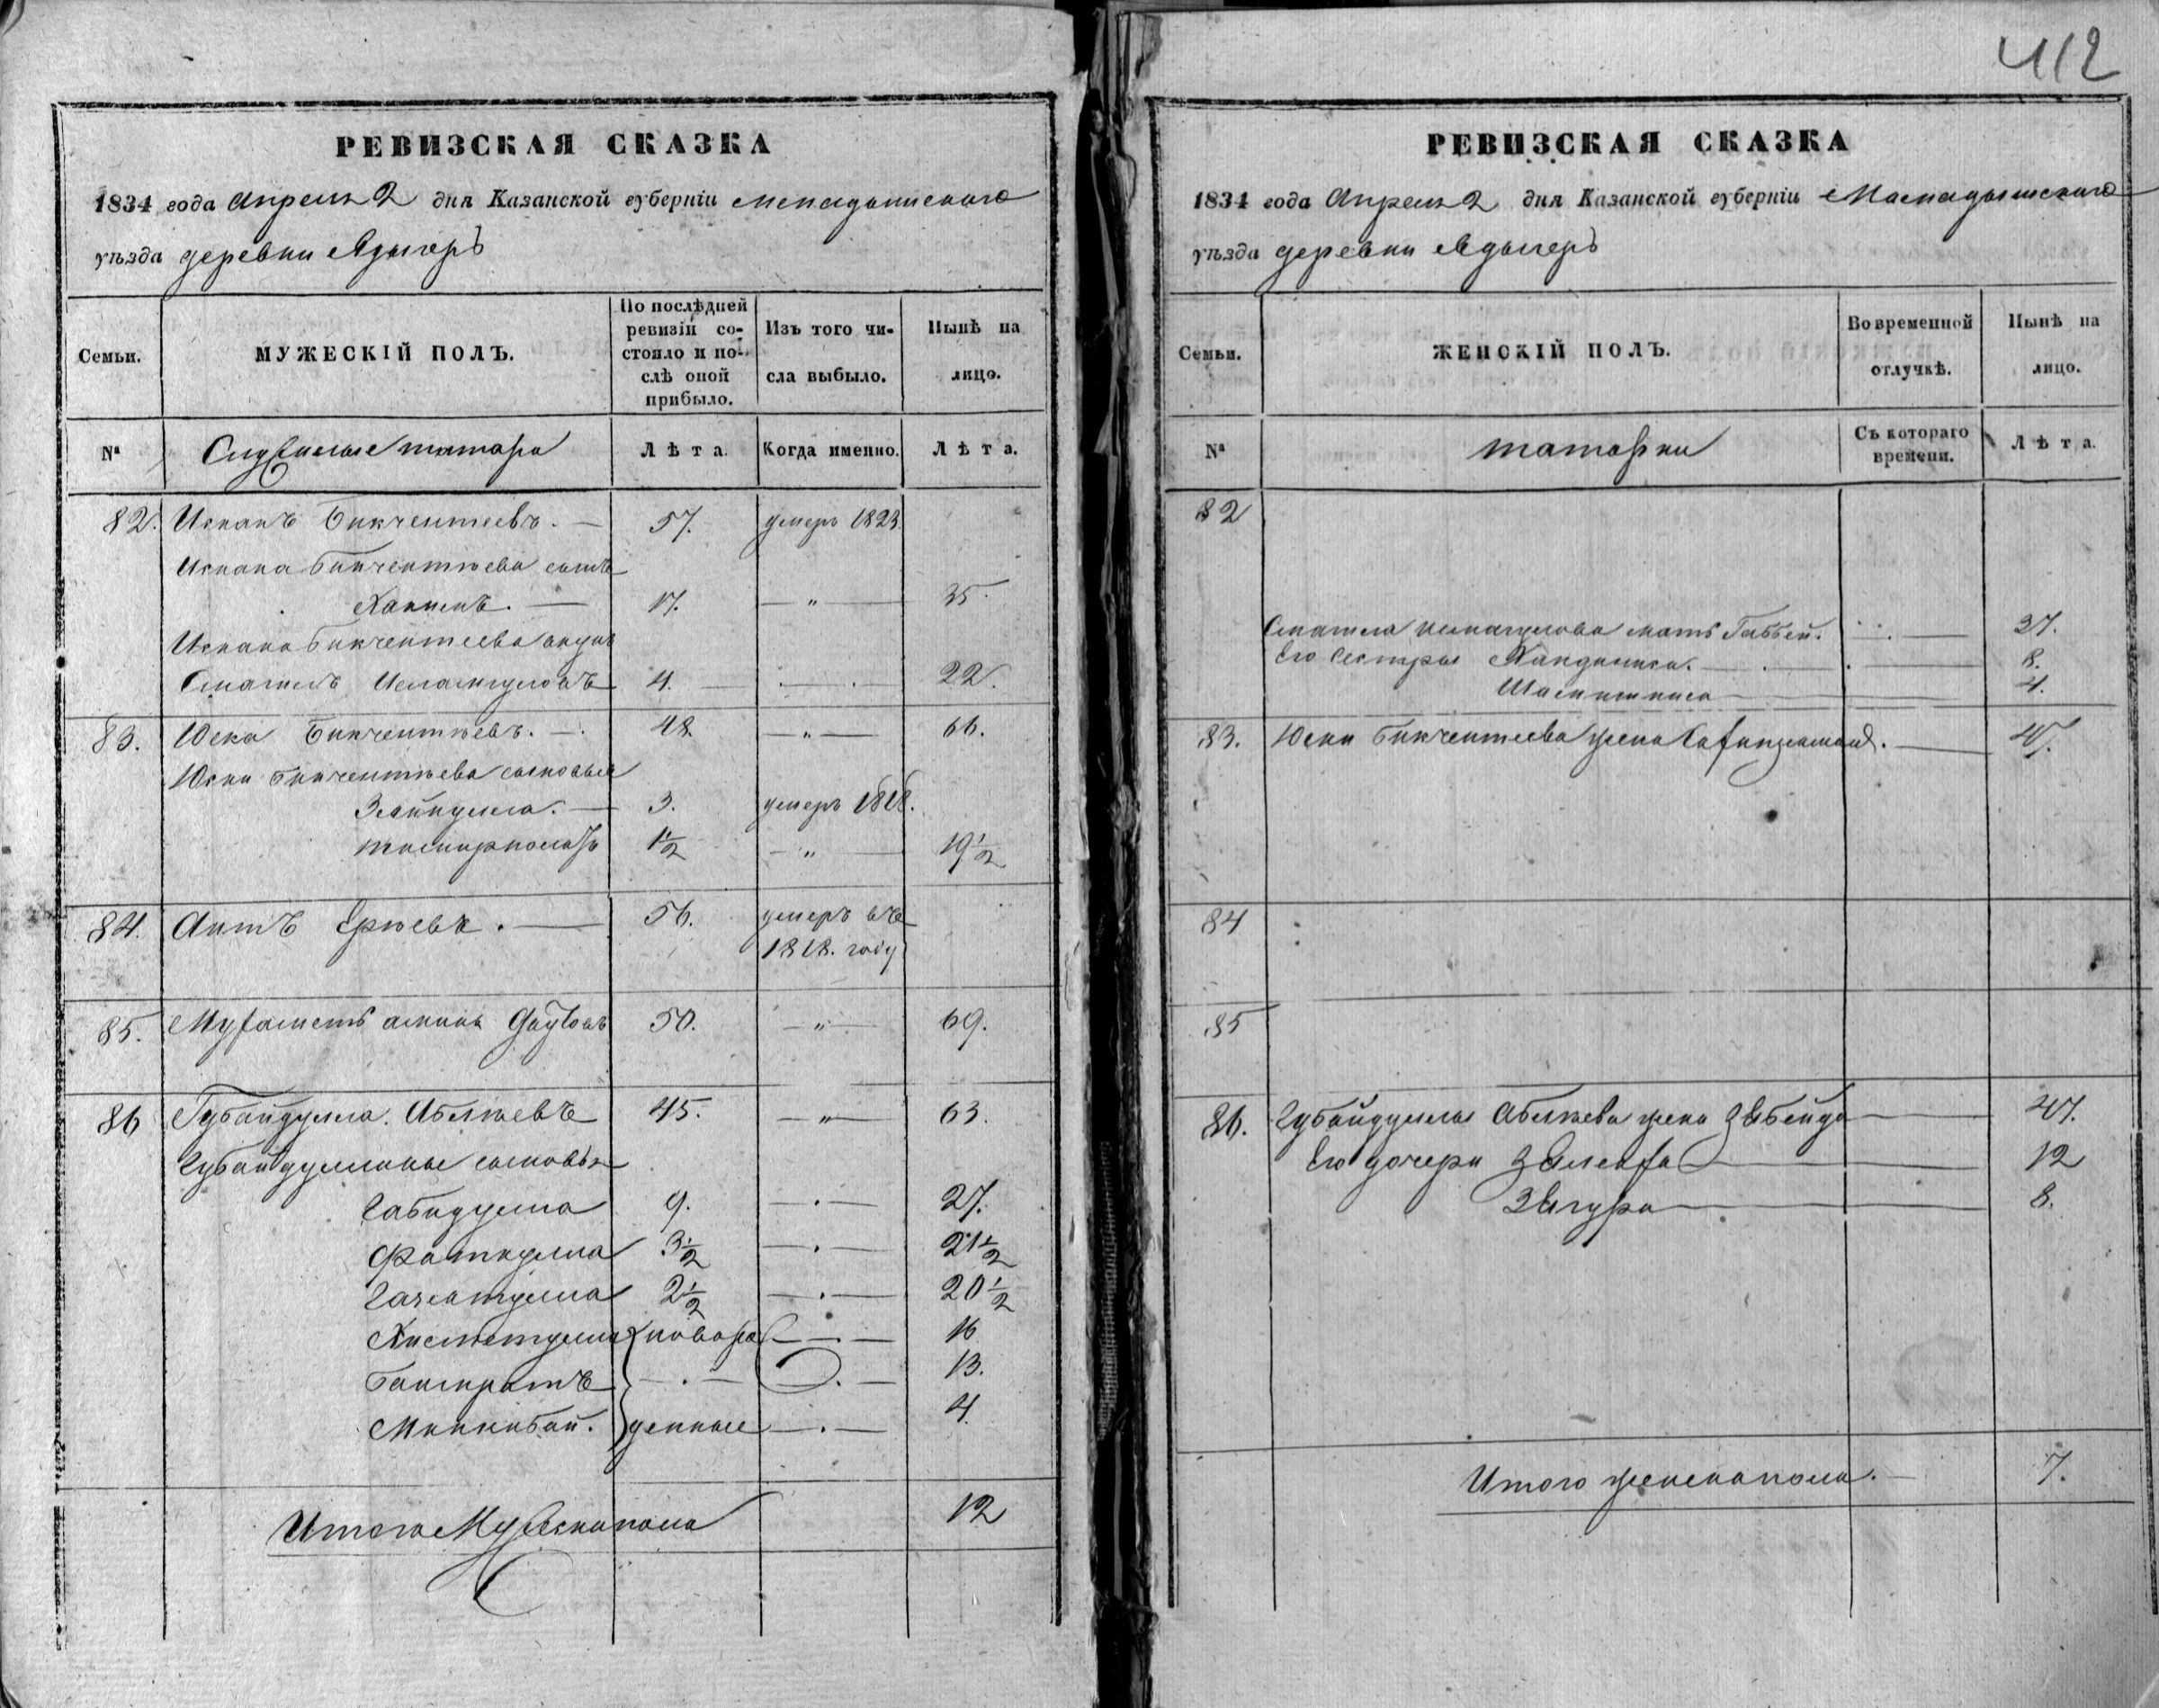 412
РЕВИЗСКАЯ СКАЗКА
1834 года Апреля 2 дня Казанской губерніи Мамадышскаго
уѣзда деревни Адыгеръ
Семьи.
МУЖЕСКІЙ ПОЛЪ.
По послѣдней ревизіи со-
стояло и по-
слѣ оной
прибыло.
Изъ того чи-
сла выбыло.
Нынѣ на
лицо.
№
Служилые татара
Лѣта.
Когда именно.
Лѣта.
82. Искакъ Бикчентеевъ. 57. умеръ 1823.
Искака Бикчентѣева сынъ
Хакимъ. 17. — " — 35.
Искака Бикчентеева внукъ
Смаилъ 4. 22.
83. Юска Бикчентѣевъ. 48. — " — 66.
Юски Бикчентѣева сыновья
3. умеръ 1818.
1½ — " — 19½
84. Аитъ 56. умеръ въ
1818. году
85. Мухаметъ аминь Даутовъ 50. — " — 69.
86 Губайдулла Абляевъ 45. — " — 63.
Губайдуллины сыновья
Габидулла 9. 27.
Фаткулла 3½ 21½
2½ 20½
Хисметулла новоро 16
13.
Миникабай. жденные 4.
Итого Мужеска пола 12
РЕВИЗСКАЯ СКАЗКА
1834 года Апреля 2 дня Казанской губерніи Мамадышскаго
уѣзда деревни Адыгеръ
Семьи.
ЖЕНСКІЙ ПОЛЪ.
Во временной
отлучкѣ.
Нынѣ на
лицо.
№
татарки
Съ котораго
времени.
Лѣта.
82
мать 37.
Его Сестры 8.
4.
83. Юски Бикчентеева жена 47.
84
85
86. Губайдуллы Абляева жена Зюбейда 47.
Его дочери 12
Зюгура 8.
Итого женска пола. 7.